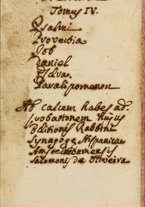 Tomus IV.
Psalmi
Proverbia
Job
Daniel
Esdra
Paralipomenon
Ad calcem habes ad-
probationem hujus
Editionis Rabbini
Synagogæ Hispanicæ
Amstelodamensis
Salomonis de Olveira